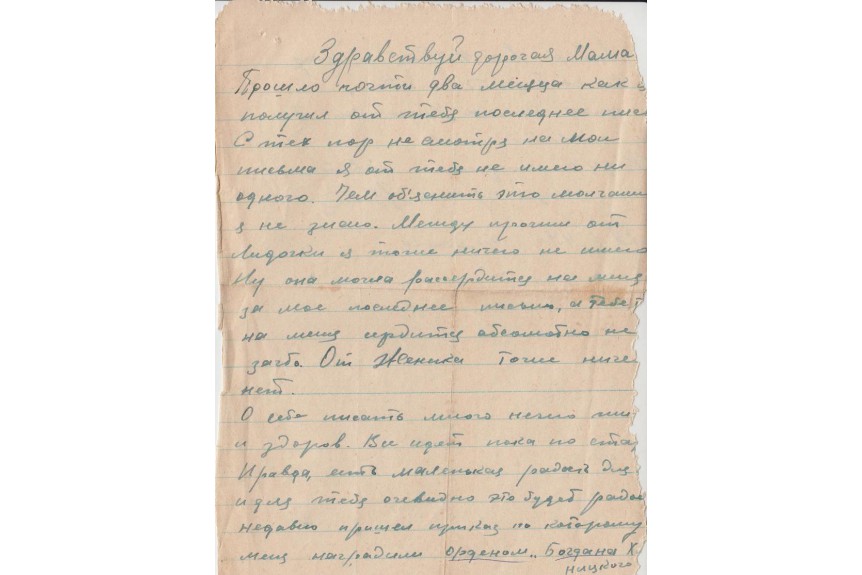 Здравствуй дорогая Мама
Прошло почти два месяца как
получил от тебя последнее пис
С тех пор не смотря на мои
письма я от тебя не имею ни
одного. Чем об'яснить это молчани
я не знаю. Между прочим от
Лидочки я тоже ничего не имею
Ну она могла рассердится на меня
за мое последнее письмо, а тебе
на меня сердится абсолютно не
за что. От Женика тоже ниче
нет.
О себе писать много нечего
и здоров. Все идет пока по ста
Правда, есть маленькая радость для
и для тебя очевидно это будет радос
недавно пришел приказ по которому
меня наградили орденом „Богдана Х
ницкого